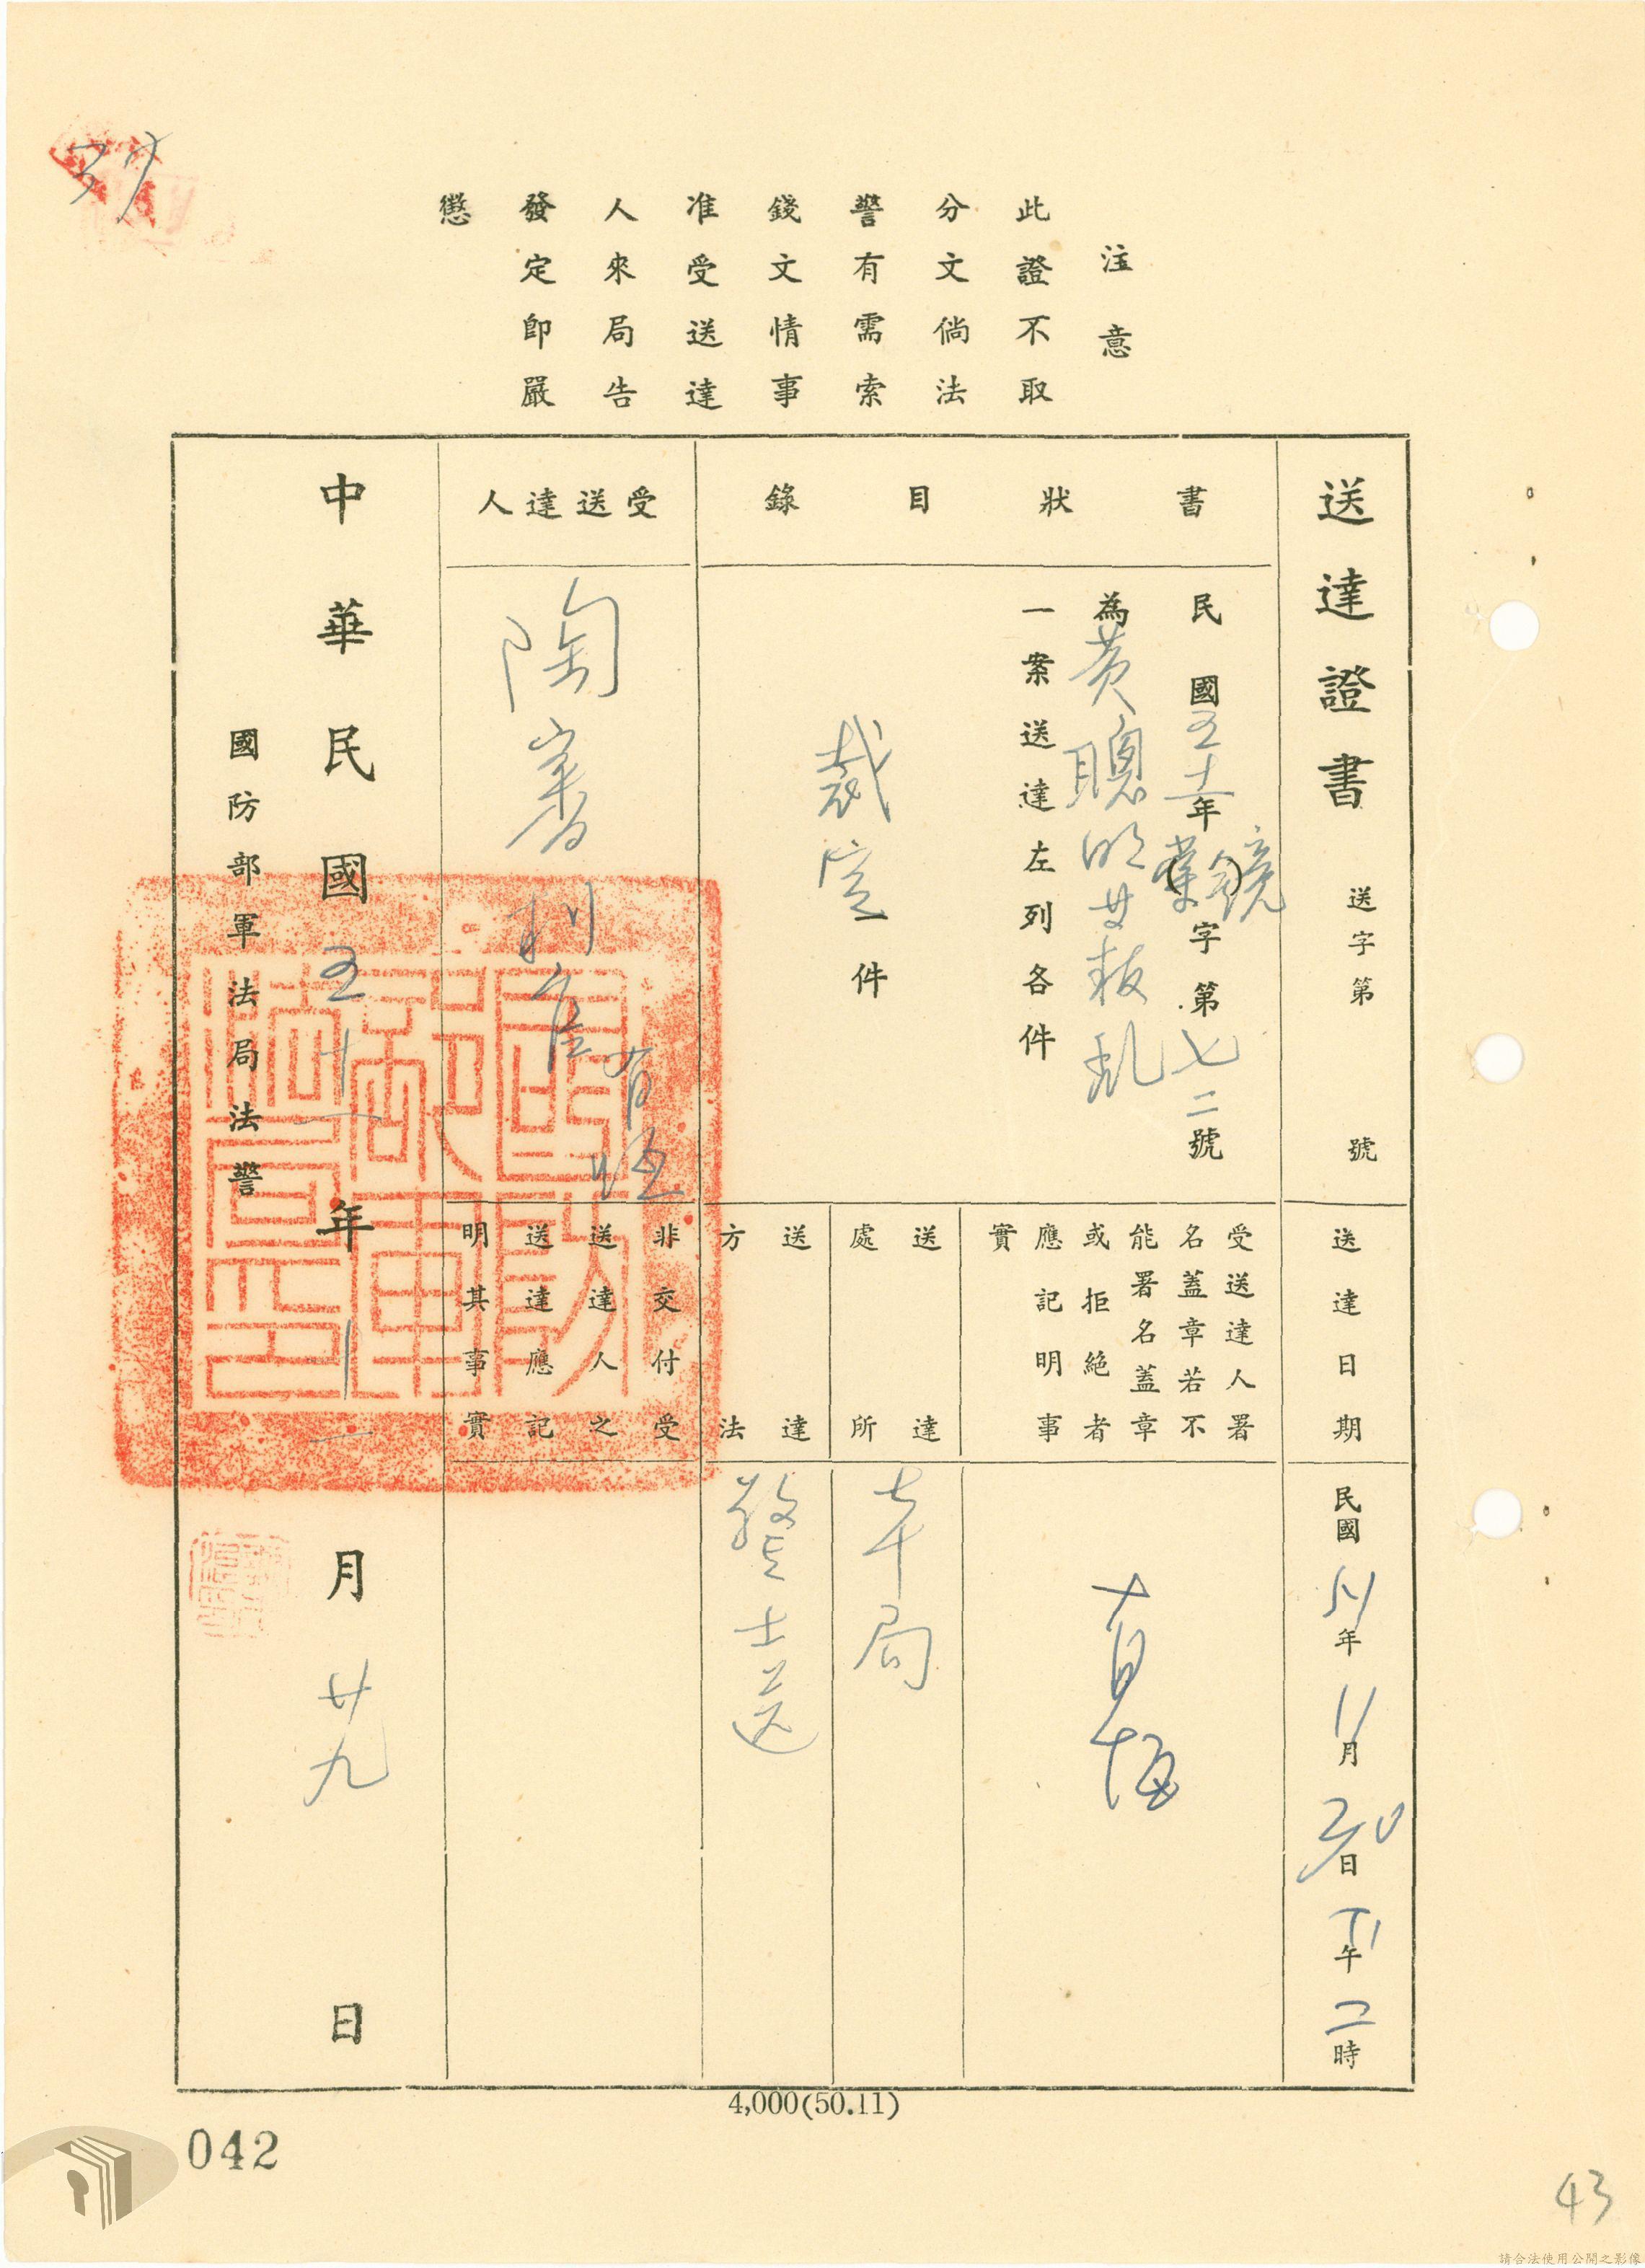 39
注意
此證不取
分文倘法
警有需索
錢文情事
准受送達
人來局告
發定即嚴
懲
送達證書 送字第 號
書狀目錄
民國五十一年(鏡業)字第七二號
為黃聰明等叛亂
一案送達左列各件
裁定一件
受送達人
陶審判官
中華民國五十一年十一月廿九日
國防部軍法局法警
送達日期
民國51年11月30日下午二時
受送達人署
名蓋章若不
能署名蓋章
或拒絕者
應記明事
實
送達
處所
本局
送達
方法
警士送
非交付受
送達人之
送達應記
明其事實
4,000(50.11)
042
43
請合法使用公開之影像